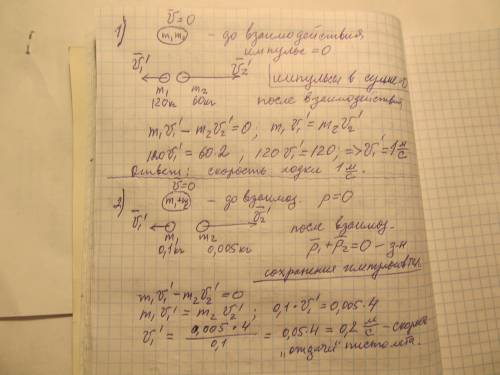 1) v̄=0
m₁m₂ - до взаимодействия
импульс =0
v̄₁' v̄₂'
импульсы в сумме-0
m₁ m₂
120кг 60кг после взаимодействия
m₁v₁' - m₂v₂' = 0; m₁v₁' = m₂v₂'
120v₁' = 60·2, 120v₁' = 120, => v₁' = 1 м/с
Ответ: скорость лодки 1 м/с.
2) v̄=0
m₁+m₂ - до взаимод p=0
v̄₁' v̄₂'
m₁ m₂ после взаимод-
0,1кг 0,005кг p̄₁+p̄₂=0 - з-н
сохранения импульсов тел.
m₁v₁' - m₂v₂' = 0
m₁v₁' = m₂v₂'; 0,1·v₁' = 0,005·4
v₁' = 0,005·4 / 0,1 = 0,05·4 = 0,2 м/с - скорость
"отдачи" пистолета.